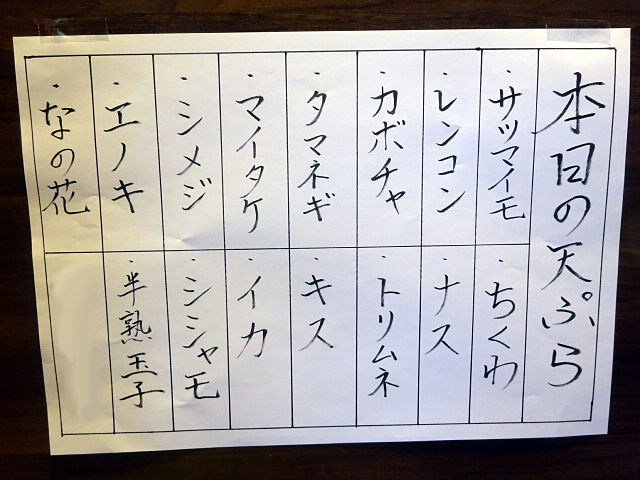 本日の天ぷら
・サツマイモ
・レンコン
・カボチャ
・タマネギ
・マイタケ
・シメジ
・エノキ
・なの花
・ちくわ
・ナス
・トリムネ
・キス
・イカ
・シシャモ
・半熟玉子